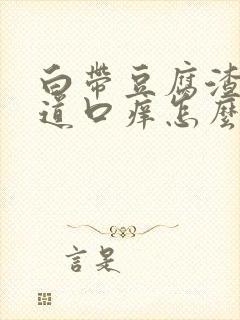 白带豆腐渣
道口痒怎麼
言是